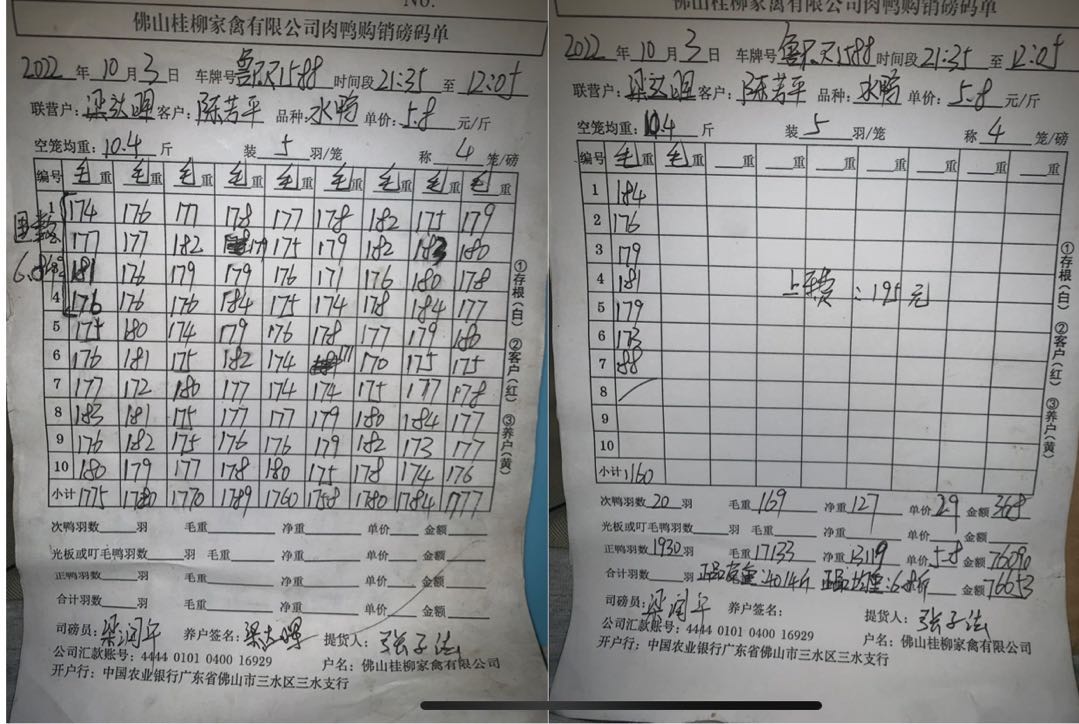 No.
佛山桂柳家禽有限公司肉鸭购销磅码单
2022 年 10 月 3 日 车牌号 1588 时间段 21:35 至 12:05
联营户: 梁达明 客户: 陈芳平 品种: 水鸭 单价: 5.8 元/斤
空笼均重: 10.4 斤 装 5 羽/笼 称 4 笼/磅
编号 毛重 毛重 毛重 毛重 毛重 毛重 毛重 毛重 毛重
1 174 176 177 178 177 178 182 175 179
2 177 177 182 179 175 179 182 183 180
3 181 176 179 179 176 171 176 180 178
4 176 176 176 184 175 174 178 184 177
5 175 180 174 179 176 178 177 179 180
6 176 181 175 182 174 171 170 175 175
7 177 172 180 177 174 174 175 177 178
8 183 181 175 177 177 179 180 184 177
9 176 182 175 176 176 179 182 173 177
10 180 179 177 178 180 175 178 174 176
小计 1775 1780 1770 1789 1760 1758 1780 1784 1777
①存根(白) ②客户(红) ③养户(黄)
次鸭羽数 羽 毛重 净重 单价 金额
光板或叮毛鸭羽数 羽 毛重 净重 单价 金额
正鸭羽数 羽 毛重 净重 单价 金额
合计羽数 羽 毛重 净重 单价 金额
司磅员: 梁润平 养户签名: 梁达明 提货人: 张子法
公司汇款账号: 4444 0101 0400 16929 户名: 佛山桂柳家禽有限公司
开户行: 中国农业银行广东省佛山市三水区三水支行
佛山桂柳家禽有限公司肉鸭购销磅码单
2022 年 10 月 3 日 车牌号 1588 时间段 21:35 至 12:05
联营户: 梁达明 客户: 陈芳平 品种: 水鸭 单价: 5.8 元/斤
空笼均重: 10.4 斤 装 5 羽/笼 称 4 笼/磅
编号 毛重 毛重 重 重 重 重 重 重
1 184
2 176
3 179
4 181 上车费: 195元
5 179
6 173
7 88
8
9
10
小计 1160
①存根(白) ②客户(红) ③养户(黄)
次鸭羽数 20 羽 毛重 169 净重 127 单价 2.9 金额 368
光板或叮毛鸭羽数 羽 毛重 净重 单价 金额
正鸭羽数 1930 羽 毛重 17133 净重 13119 单价 5.8 金额 76090
合计羽数 羽 正品空重: 4014斤 正品均重: 6.8斤 金额 76653
司磅员: 梁润平 养户签名: 提货人: 张子法
公司汇款账号: 4444 0101 0400 16929 户名: 佛山桂柳家禽有限公司
开户行: 中国农业银行广东省佛山市三水区三水支行